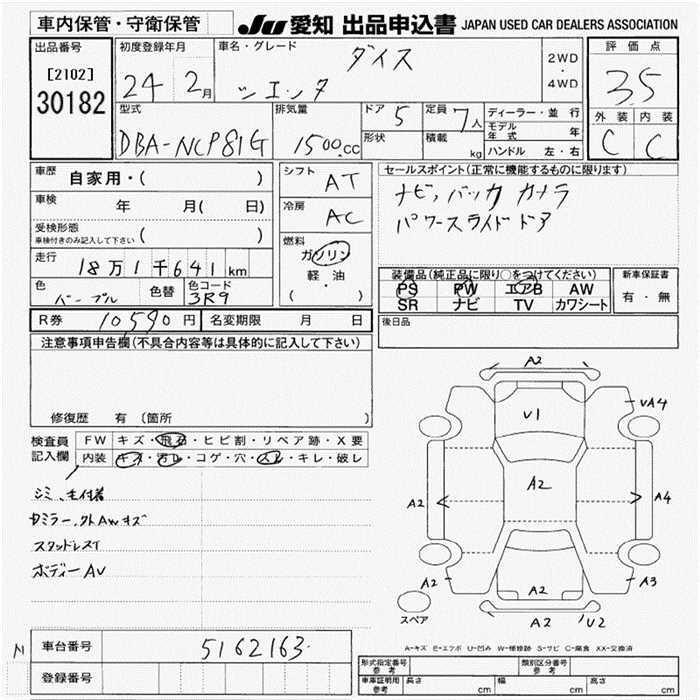 車内保管・守衛保管
JU 愛知 出品申込書 JAPAN USED CAR DEALERS ASSOCIATION
出品番号
[2102]
30182
初度登録年月
24 2月
車名・グレード
ダイス
シエンタ
2WD
・
4WD
評価点
3.5
外装 内装
C C
型式
DBA-NCP81G
排気量
1500.cc
ドア 5
定員 7人
形状
積載 kg
ディーラー・並行
モデル年式 年
ハンドル 左・右
車歴
自家用・( )
車検 年 月( 日)
受検形態
車検付きのみ記入して下さい ( )
走行
18万1千641km
色
パープル
色替
色コード
3R9
シフト
AT
冷房
AC
燃料
ガソリン
軽・油
( )
セールスポイント(正常に機能するものに限ります)
ナビ、バックカメラ
パワースライドドア
装備品(純正品に限り○をつけてください)
PS PW エアB AW
SR ナビ TV カワシート
新車保証書
有・無
R券 10,590円
名変期限 月 日
後日品
注意事項申告欄(不具合内容等は具体的に記入して下さい)
修復歴 有 〔箇所 〕
検査員
記入欄
FW キズ・飛石・ヒビ割・リペア跡・X要
内装 キズ・汚レ・コゲ・穴・スレ・キレ・破レ
シミ、毛付着
スタッドレス
ボディーAU
A2
U1
UA4
A2
A2
A4
A2
A2
A3
A2
U2
スペア
A-キズ E-エクボ U-凹み W-補修跡 S-サビ C-腐食 XX-交換済
車台番号 5162163
登録番号
型式指定番号
参考
類別区分番号
参考
車庫証明用
参考
長さ cm
幅 cm
高さ cm